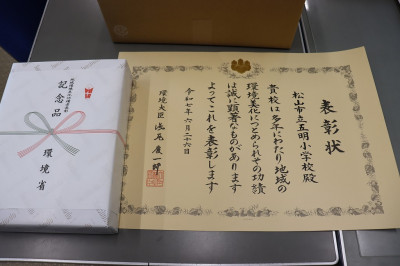 表彰状
松山市立五明小学校殿
貴校は多年にわたり地域の
環境美化につとめられその功績
は誠に顕著なものがあります
よってこれを表彰します
令和七年六月二十六日
環境大臣 浅尾慶一郎
記念品
環境省